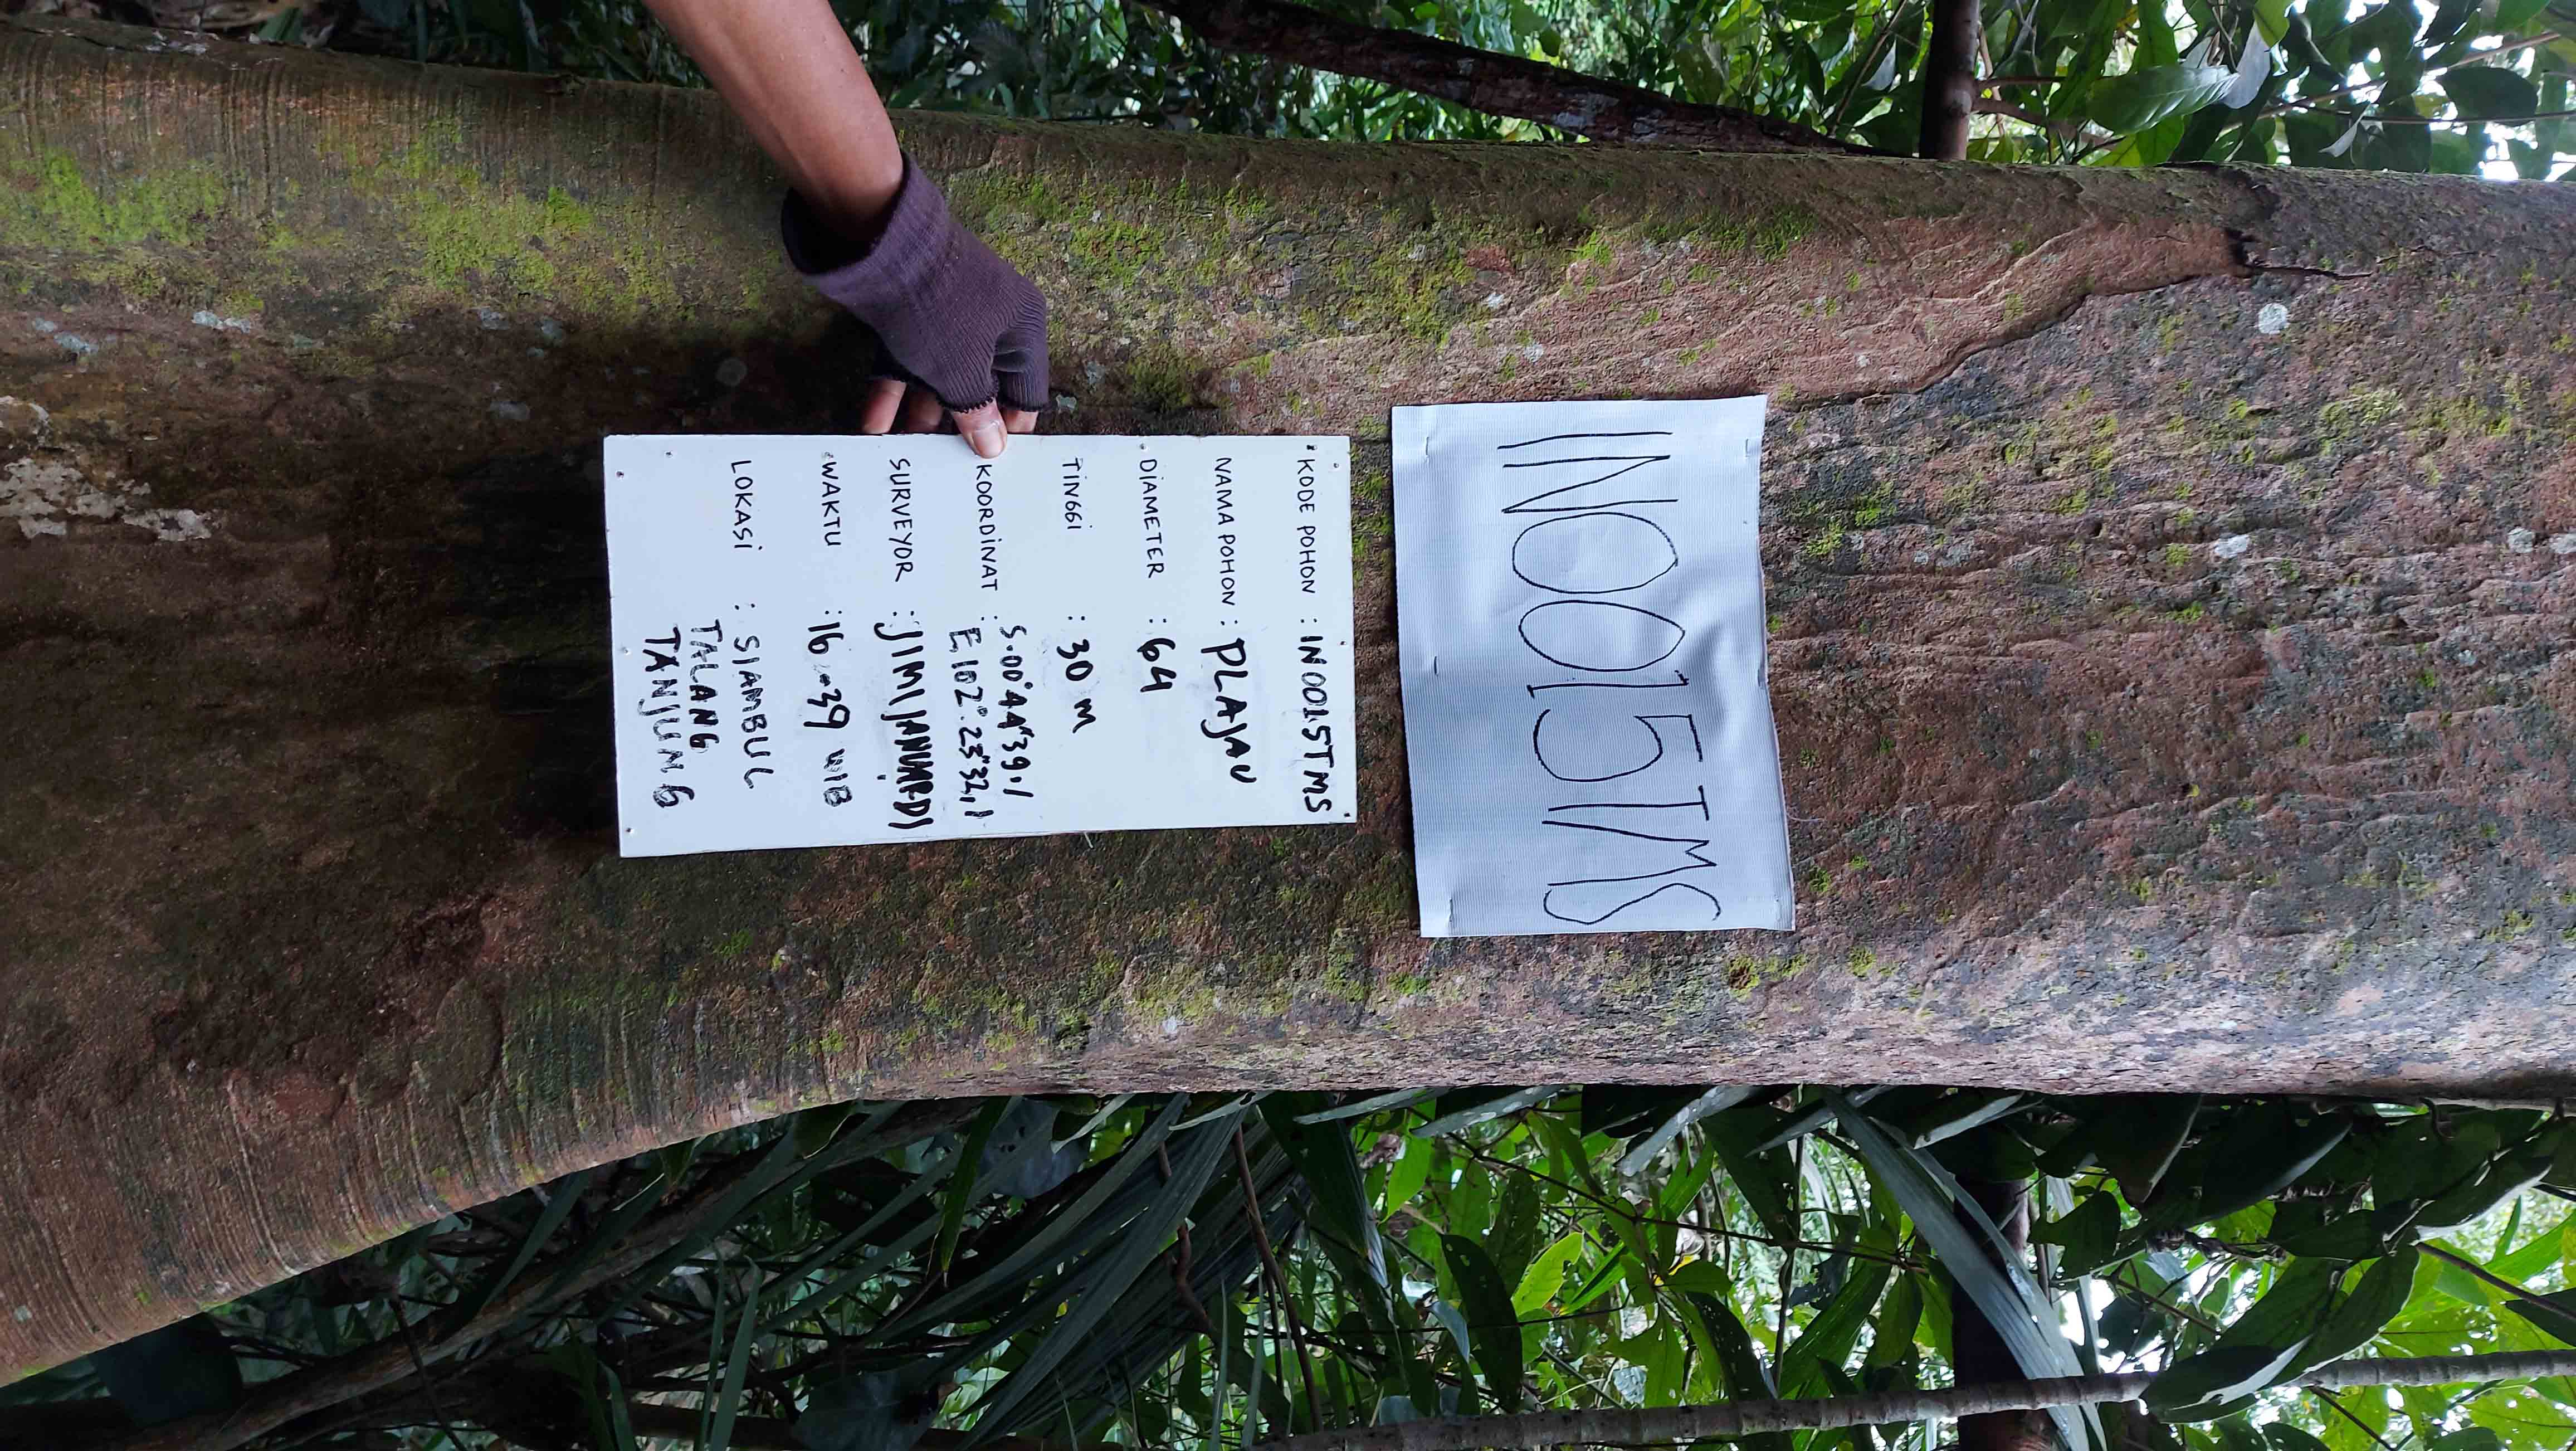 IN0015TMS
KODE POHON : IN0015TMS
NAMA POHON : PLAJAU
DIAMETER : 64
TINGGI : 30 M
KOORDINAT : S.00°44"39.1
E 102°.23"32,1
SURVEYOR : JIMI JANUARDI
WAKTU : 16 -39 WIB
LOKASI : SIAMBUL
TALANG
TANJUNG